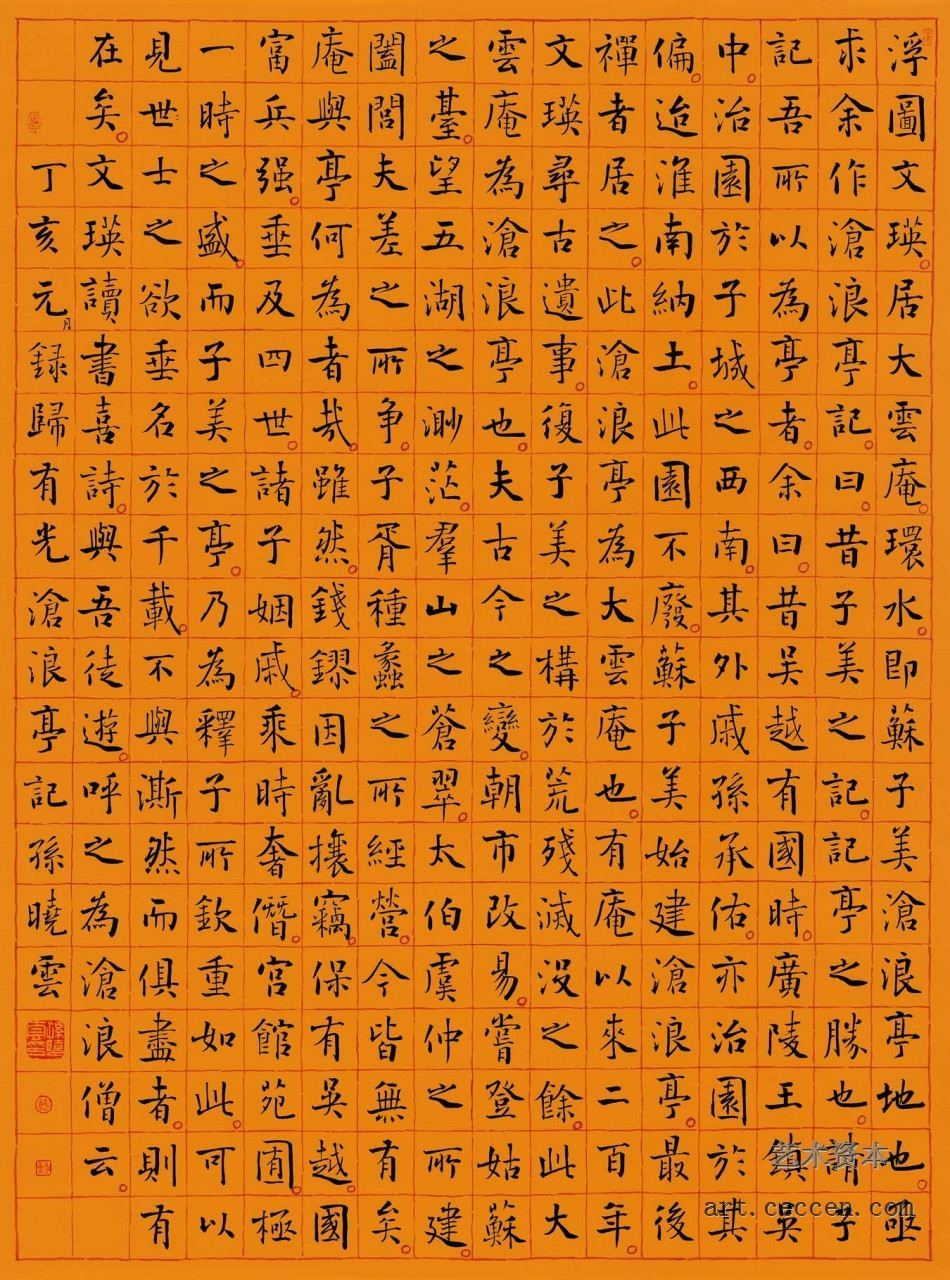 浮圖文瑛。居大雲庵。環水。即蘇子美滄浪亭地也。亟
求余作滄浪亭記。曰。昔子美之記。記亭之勝也。請子
記吾所以為亭者。余曰。昔吳越有國時。廣陵王鎮吳
中。治園於子城之西南。其外戚孫承佑。亦治園於其
偏。迨淮南納土。此園不廢。蘇子美始建滄浪亭。最後
禪者居之。此滄浪亭為大雲庵也。有庵以來二百年
文瑛尋古遺事。復子美之構於荒殘滅没之餘。此大
雲庵為滄浪亭也。夫古今之變。朝市改易。嘗登姑蘇
之臺。望五湖之渺茫。羣山之蒼翠。太伯虞仲之所建。
闔閭夫差之所争。子胥種蠡之所經營。今皆無有矣。
庵與亭何為者哉。雖然。錢鏐因亂攘竊。保有吳越國
富兵强。垂及四世。諸子姻戚。乘時奢僭。宮館苑囿。極
一時之盛。而子美之亭。乃為釋子所欽重如此。可以
見世士之欲垂名於千載。不與澌然而俱盡者。則有
在矣。文瑛讀書喜詩。與吾徒遊。呼之為滄浪僧云。
丁亥元月錄歸有光滄浪亭記孫曉雲
艺术资本
art.ceccen.com